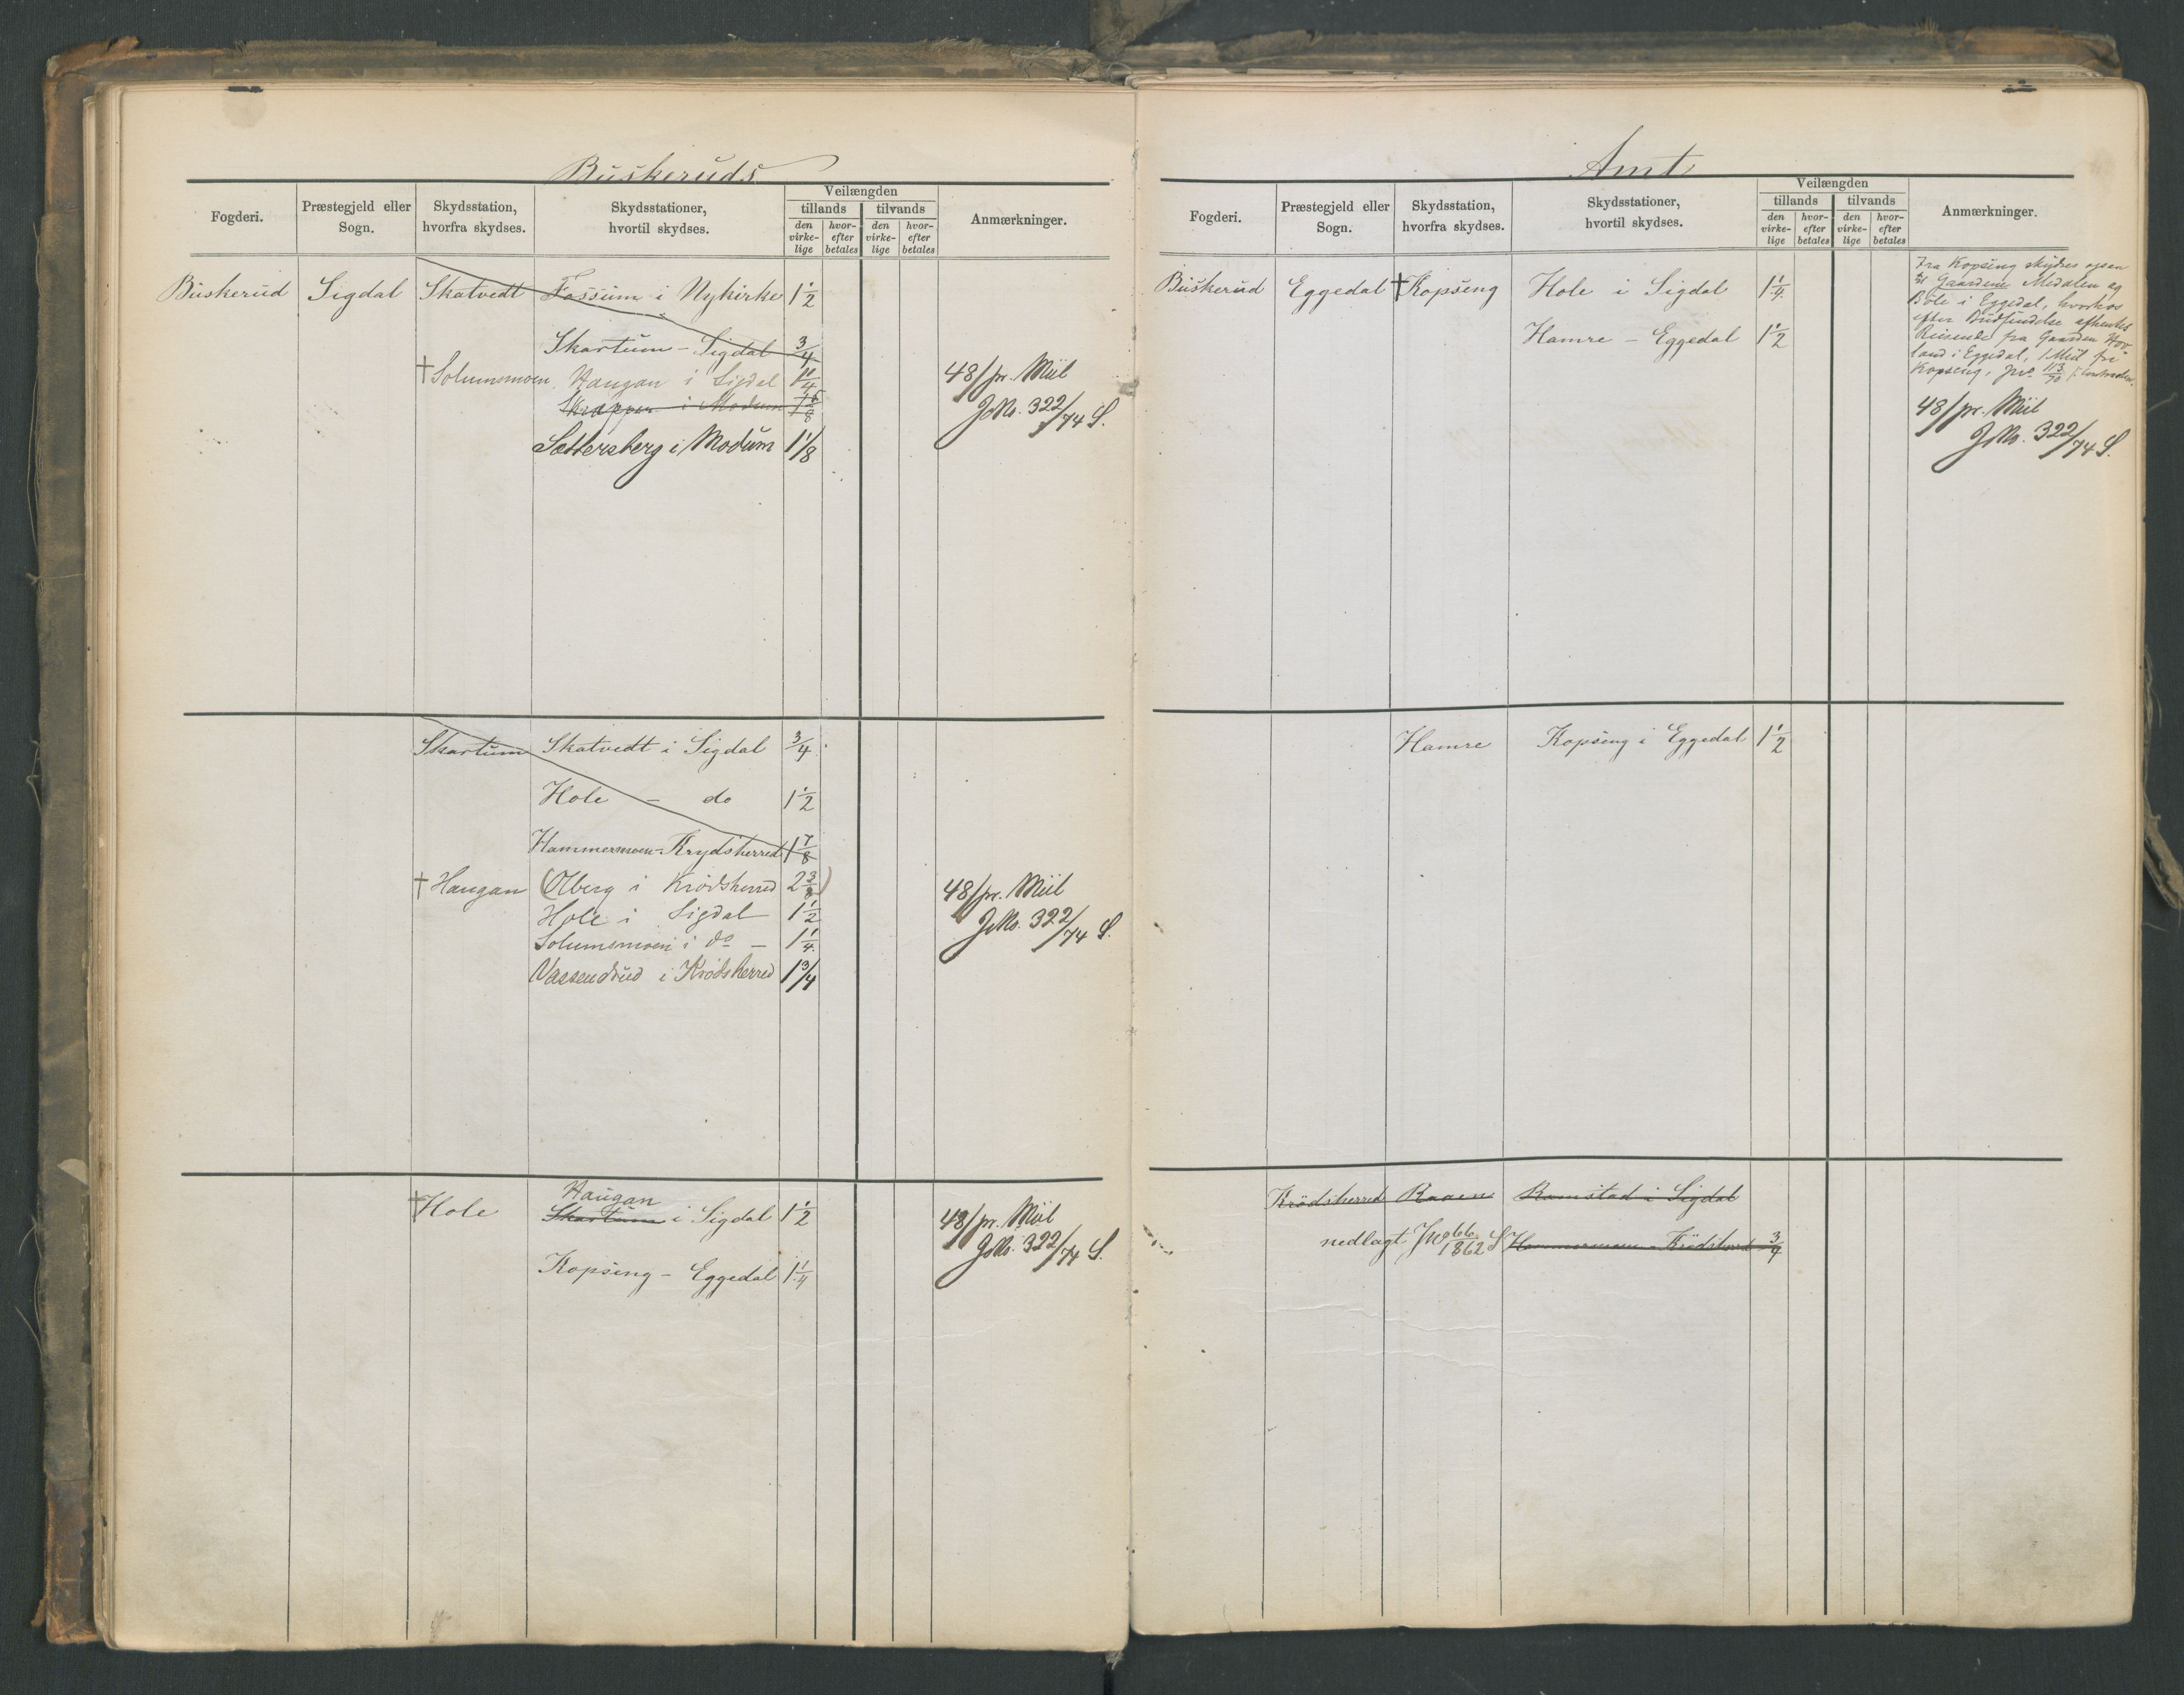 Buskeruds
Fogderi. Præstegjeld eller Sogn. Skydsstation, hvorfra skydses. Skydsstationer, hvortil skydses. Veilængden tillands tilvands den virke-lige hvor-efter betales den virke-lige hvor-efter betales Anmærkninger.
Buskerud Sigdal Skatvedt Fossum i Nykirke 1 1/2
Skartum - Sigdal 3/4
†Solumsmoen Haugan i Sigdal 1 1/4 48/ pr. Miil
i Modum 1 5/8 JNo. 322/74 S.
Sættersberg i Modum 1 1/8
Skartum Skatvedt i Sigdal 3/4
Hole - do 1 1/2
Hammermoen - Krydsherred 1 7/8
†Haugan (Olberg i Krødsherred 2 3/8) 48/ pr. Miil
Hole i Sigdal 1 1/2 JNo. 322/74 S.
Solumsmoen i do - 1 1/4
Vassendrud i Krødsherred 1 3/4
Haugan
†Hole Skartum i Sigdal 1 1/2 48/ pr. Miil
JNo. 322/74 S.
Kopseng - Eggedal 1 1/4
Amt
Fogderi. Præstegjeld eller Sogn. Skydsstation, hvorfra skydses. Skydsstationer, hvortil skydses. Veilængden tillands tilvands den virke-lige hvor-efter betales den virke-lige hvor-efter betales Anmærkninger.
Buskerud Eggedal †Kopseng Hole i Sigdal 1 1/4
Hamre - Eggedal 1 1/2
Fra Kopseng skydses ogsaa
til Gaardene Medalen og
Bøle i Eggedal, hvorhos
efter Budsendelse afhentes
Reisende fra Gaarden Hov-
land i Eggedal, 1 Miil fra
Kopseng, Jno 113/70
48/ pr. Miil
JNo. 322/74 S.
Hamre Kopseng i Eggedal 1 1/2
Krödsherred Raaen Ramstad i Sigdal
nedlagt, Jno 66/1862 S Hammermoen - Krödsherred 3/4